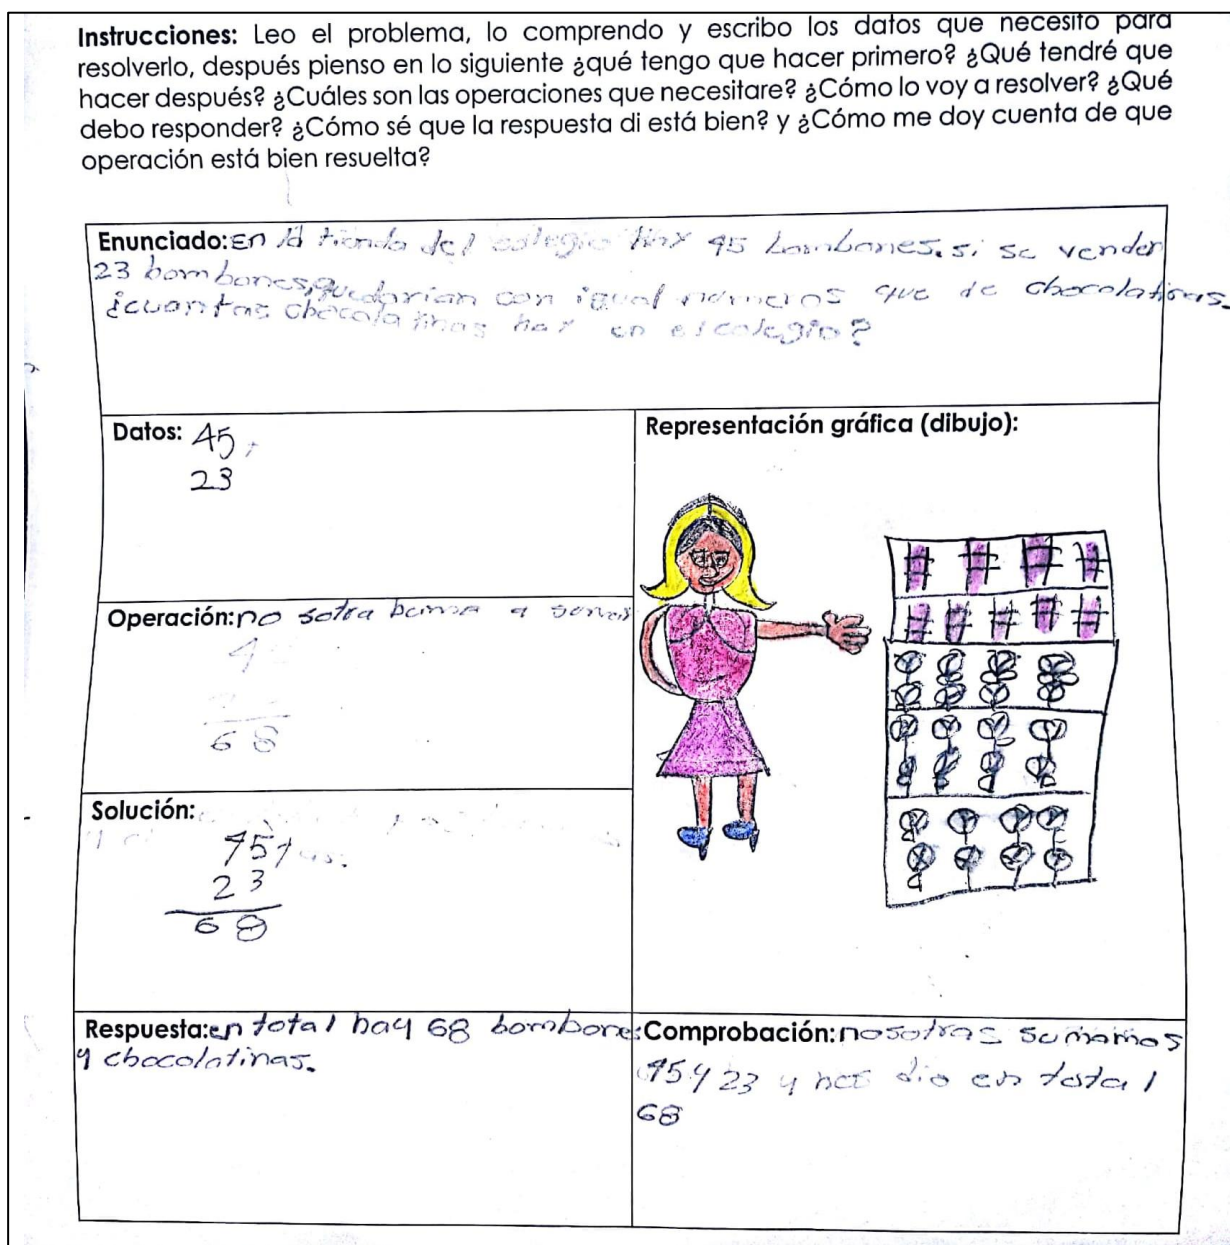 Instrucciones: Leo el problema, lo comprendo y escribo los datos que necesito para
resolverlo, después pienso en lo siguiente ¿qué tengo que hacer primero? ¿Qué tendré que
hacer después? ¿Cuáles son las operaciones que necesitare? ¿Cómo lo voy a resolver? ¿Qué
debo responder? ¿Cómo sé que la respuesta di está bien? y ¿Cómo me doy cuenta de que
operación está bien resuelta?
Enunciado: En la tienda del colegio hay 45 bombones. si se venden
23 bombones, quedarian con igual numeros que de chocolatinas.
¿cuantas chocolatinas hay en el colegio?
Datos: 45
23
Representación gráfica (dibujo):
Operación: no sotra bamos a
4
68
Solución:
45
23
68
Respuesta: en total hay 68 bombones
y chocolatinas.
Comprobación: nosotras sumamos
45 y 23 y nos dio en total
68